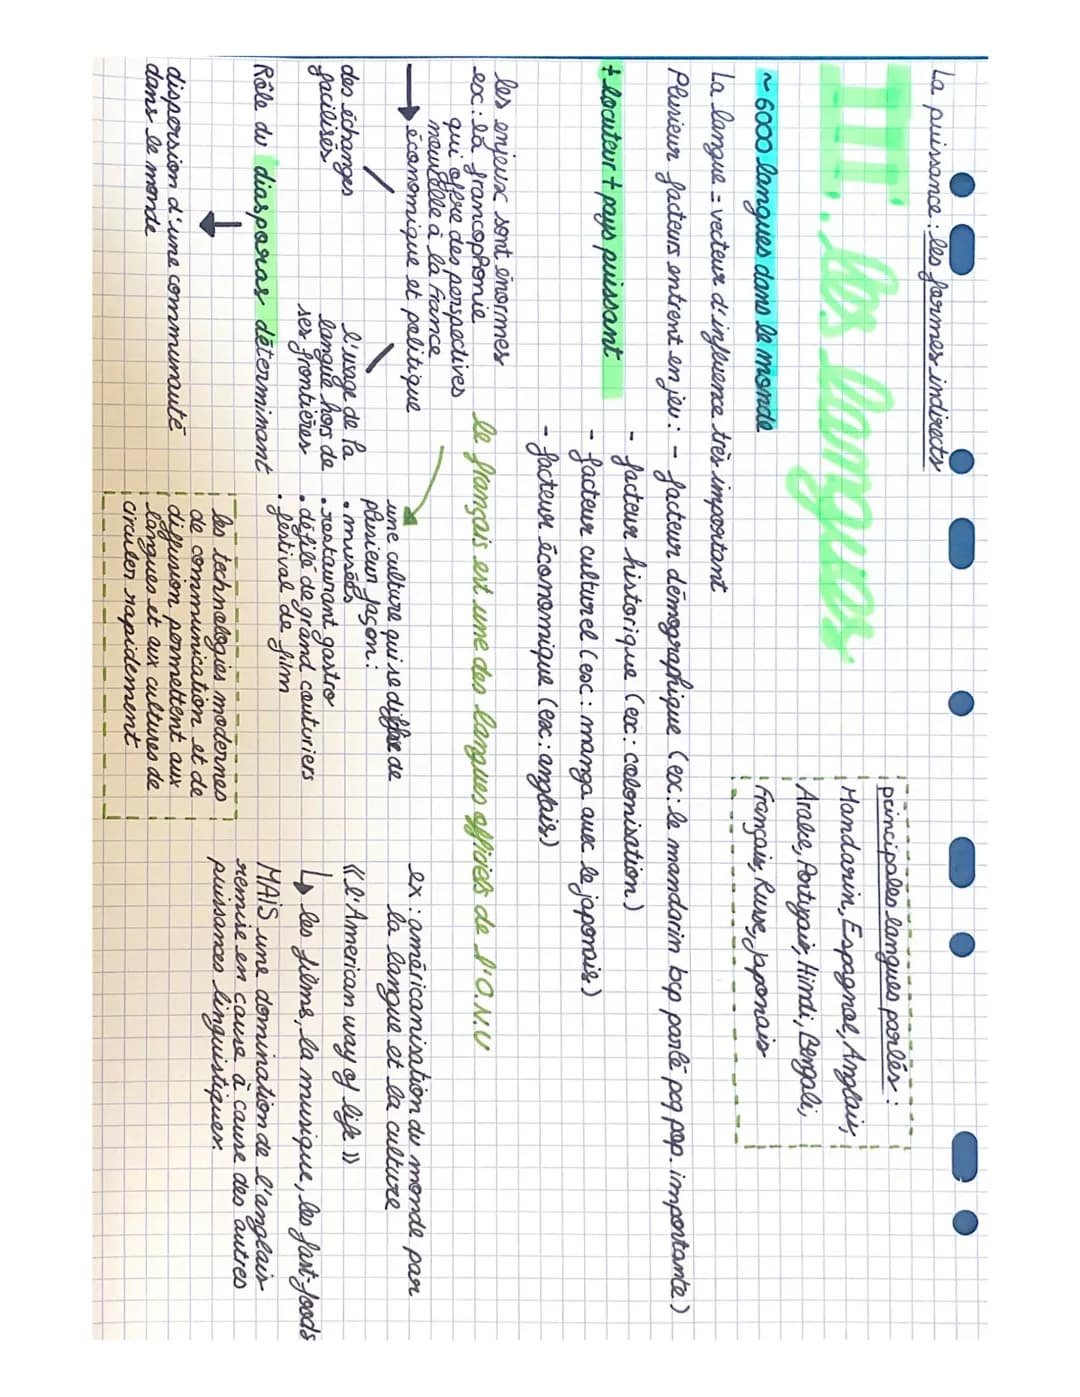 La puissance : les formes indirects
III. les langues
principales langues parlés :
Mandarin, Espagnol, Anglais,
Arabe, Portugais, Hindi, Bengali,
Français, Russe, japonais
~ 6000 langues dans le monde
La langue = vecteur d'influence très important
Plusieur facteurs entrent en jeu : - facteur démographique (ex : le mandarin bcp parlé pcq pop. importante)
- facteur historique (ex : colonisation)
+ locuteur + pays puissant
- facteur culturel (ex : manga avec le japonais)
- facteur économique (ex : anglais)
les enjeux sont énormes
ex : la francophonie
qui offre des perspectives
nouvelle à la France
→ économique et politique
des échanges
facilisés
l'usage de la
langue hors de
ses frontières
le français est une des langues officiels de l'O.N.U
une culture qui se diffuse de
plusieur façon :
• musées
• restaurant gastro
• défilé de grand couturiers
• festival de film
ex : américanisation du monde par
la langue et la culture
« l'American way of life »
↳ les films, la musique, les fast-foods
MAIS une domination de l'anglais
remise en cause à cause des autres
puissances linguistiques.
Rôle du diasporas déterminant
↓
dispersion d'une communauté
dans le monde
les technologies modernes
de communication et de
diffusion permettent aux
langues et aux cultures de
circuler rapidement